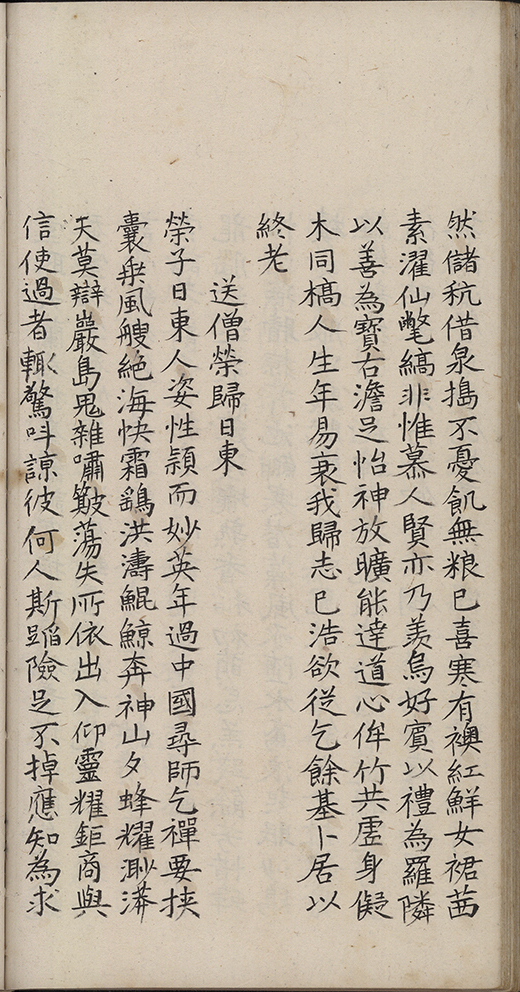 然儲秔借泉搗不憂飢無粮已喜寒有襖紅鮮女裙茜
素濯仙氅縞非惟慕人賢亦乃羨烏好賓以禮為羅隣
以善為寶右澹足怡神放曠能達道心侔竹共虛身儗
木同槁人生年易衰我歸志已浩欲從乞餘基卜居以
終老
送僧榮歸日東
榮子日東人姿性頴而妙英年過中國尋師乞禪要挾
囊乗風艘絕海快霜鷂洪濤鯤鯨奔神山夕蜂耀渺漭
天莫辯巖島鬼雜嘯簸蕩失所依出入仰靈耀鉅商與
信使過者輒驚叫諒彼何人斯蹈險足不掉應知為求